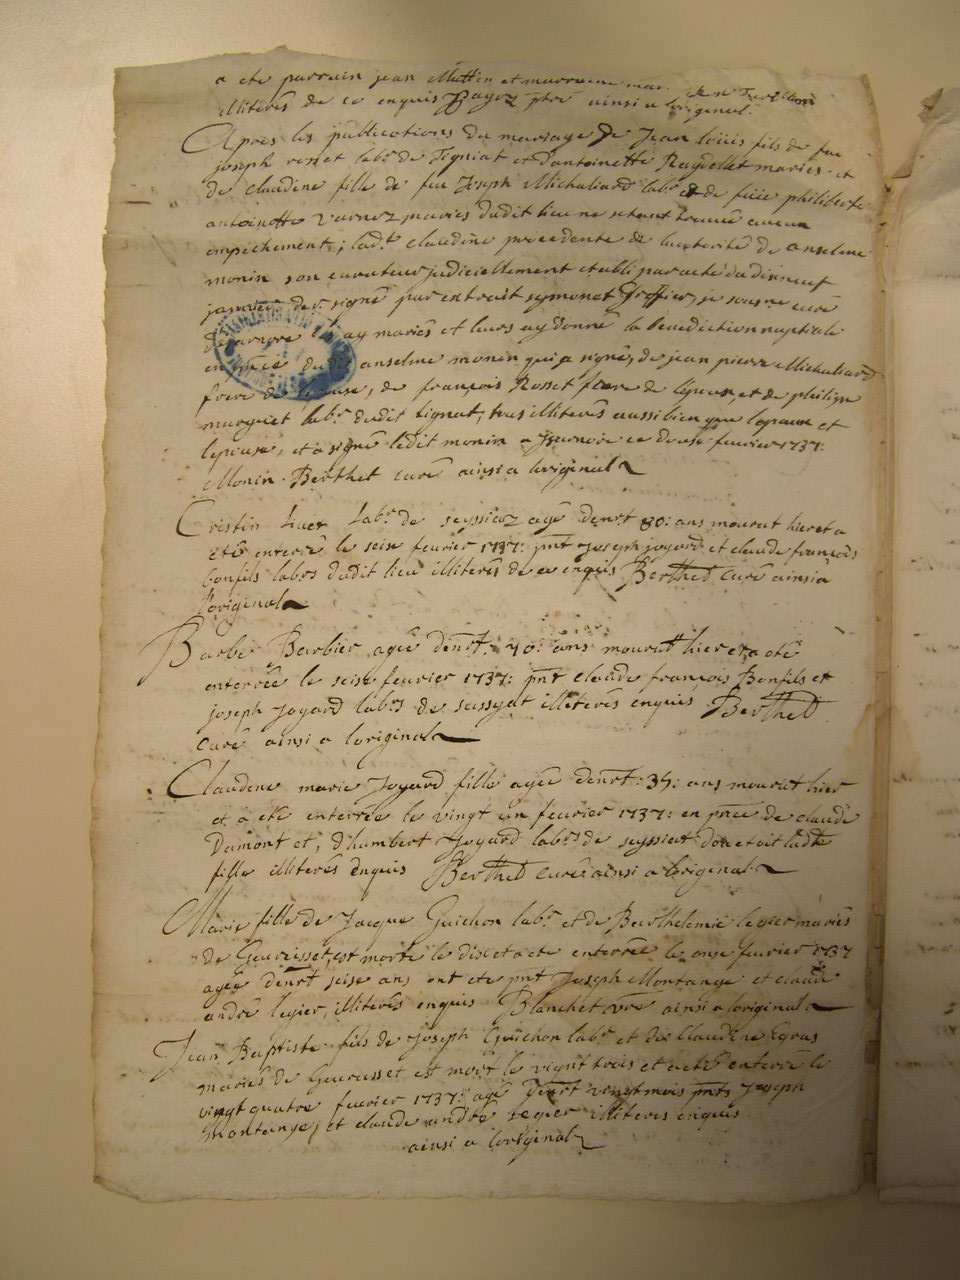 a ete parrain jean Muttin et marraine
illiterés de ce enquis Pagoz ptre ainsi a loriginal.
Apres les publications du mariage de Jean loüis fils de feu
joseph rosset labr. de Tigniat et d'antoinette maries et
de claudine fille de feu Joseph Michaliard labr. et de philiberte
antoinette varnoz maries dudit lieu ne setant trouué aucun
empechement; lad.te claudine precedente de lautorité de anselme
monin son curateur judiciellement etabli par acte du dixneuf
janvier der. signé par extrait symonet Greffier, je soussné curé
les ay mariés et leurs ay donné la benediction nuptiale
en pnce dudit anselme monin qui a signé, de jean pierre Michaliard
frere de lepouse, de françois Rosset frere de lepoux et de philippe
marguet labr. dudit tignat, tous illiterés aussi bien que lepoux et
lepouse, et a signé ledit monin a ce douse feurier 1737:
Monin. Berthet curé ainsi a loriginal
Crestin huet labr. de seyssiaz agé denrt 80: ans mourut hier et a
eté enterré le seise feurier 1737: pnt Joseph joyard et claude françois
bonfils labrs dudit lieu illiterés de ce enquis Berthet curé ainsi a
l'original
Barbe Barbier agée denrt. 40: ans mourut hier et a eté
enterrée le seise feurier 1737: pnt claude françois Bonfils et
joseph Joyard labrs de sassyat illiterés enquis Berthet
curé ainsi a loriginal
Claudine marie Joyard fille agée denrt: 35: ans mourut hier
et a eté enterrée le vingt un feurier 1737: en pnce de claude
Dumont et, d'humbert Joyard labrs de seyssiat dou etoit ladte
fille illiterés enquis Berthet curé ainsi a loriginal
Marie fille de Jacque Guichon labr. et de Berthelemie legier mariés
de Geurisset, est morte le dix et a ete enterrée le onse feurier 1737
agée denrt seise ans ont ete pnt Joseph Montange et claude
andré legier, illiterés enquis Blanchet vre ainsi a loriginal
Jean Baptiste fils de Joseph Guichon labr et de Claudine Egras
mariés de Geurasset est mort le vignt trois et a eté enterré le
vingt quatre feurier 1737: agé denrt vingt mois pnts Joseph
Montange, et claude andré legier illiteres enquis
ainsi a loriginal